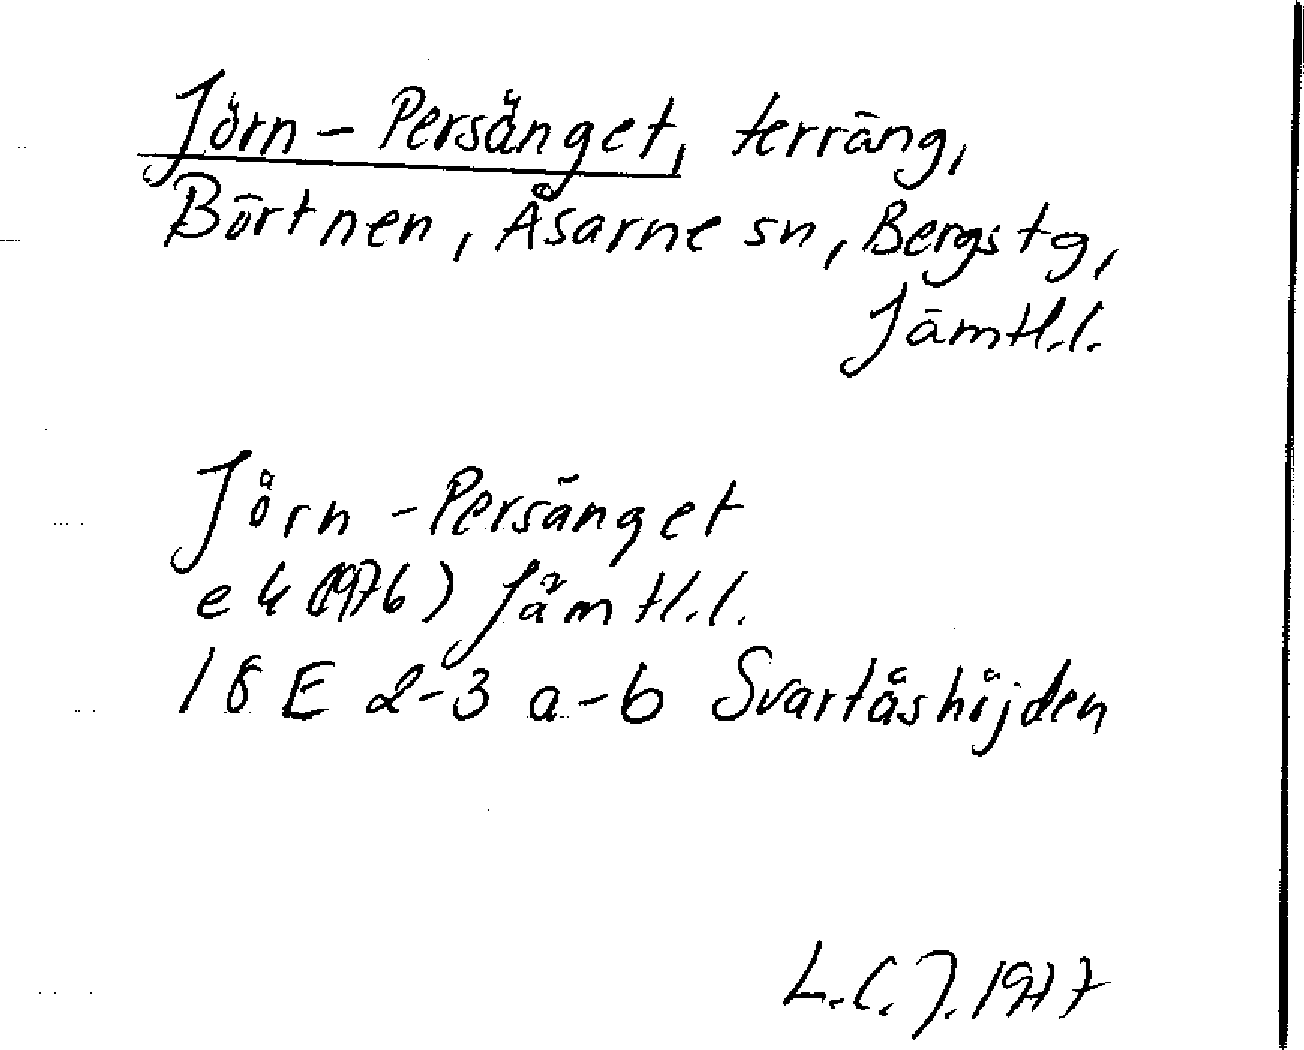 Jörn-Persänget, terräng,
Börtnen, Åsarne sn, Bergs tg,
Jämtl.l.
Jörn-Persänget
ek (1976) Jämtl.l.
18 E 2-3 a-b Svartåshöjden
L.C.J. 1977